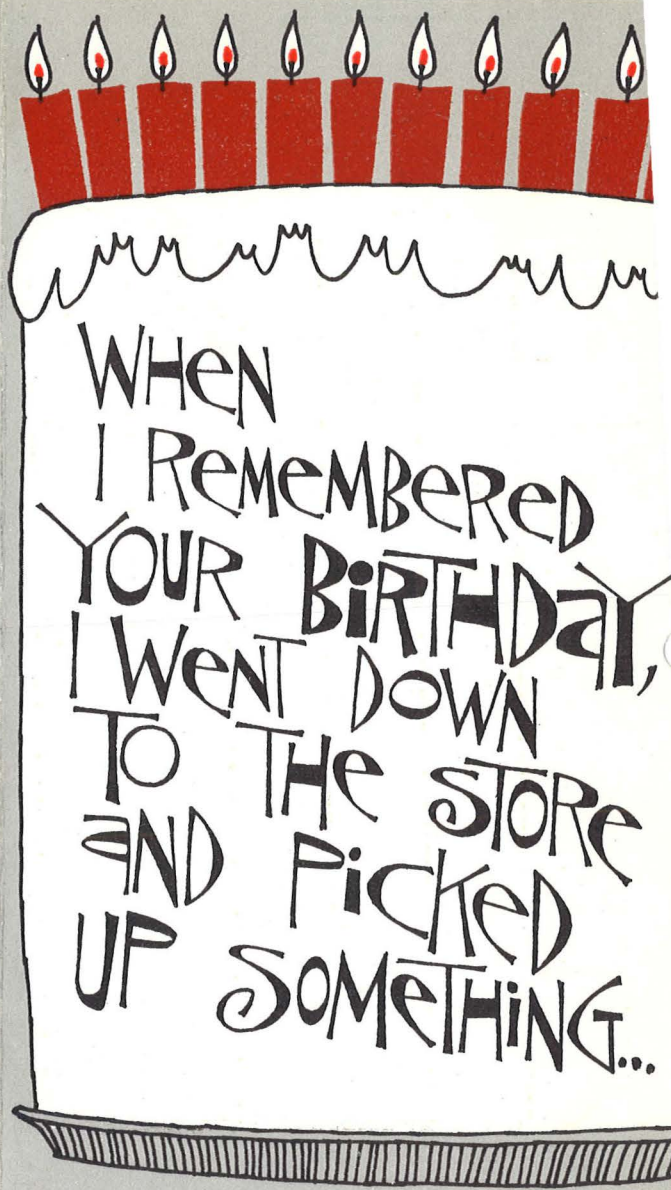 WHeN
I ReMeMBeReD
YOUR BiRTHDaY,
I WeNT DOWN
TO THe STORe
aND PiCKeD
UP SOMeTHiNG...